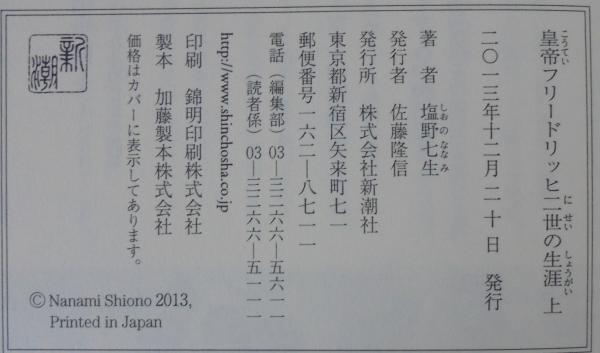 皇帝フリードリッヒ二世の生涯 上
こうてい
にせい
しょうがい
二〇一三年十二月二十日 発行
著者 塩野七生
しおのななみ
発行者 佐藤隆信
発行所 株式会社新潮社
東京都新宿区矢来町七一
郵便番号一六二―八七一一
電話(編集部)03―三二六六―五六一一
(読者係)03―三二六六―五一一一
http://www.shinchosha.co.jp
印刷 錦明印刷株式会社
製本 加藤製本株式会社
価格はカバーに表示してあります。
新潮
© Nanami Shiono 2013,
Printed in Japan